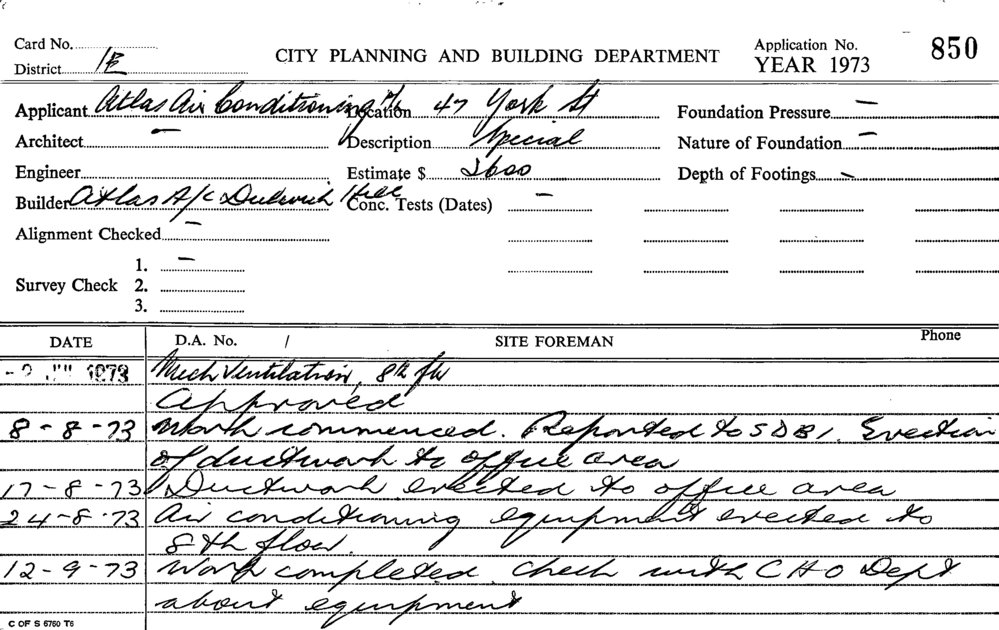 Card No.
District 1E
CITY PLANNING AND BUILDING DEPARTMENT
Application No. 850
YEAR 1973
Applicant Atlas Air Conditioning P/L
Location 47 York St
Foundation Pressure —
Architect —
Description Special
Nature of Foundation —
Engineer
Estimate $ 2600
Depth of Footings —
Builder Atlas A/C Dulwich Hill
Conc. Tests (Dates) —
Alignment Checked —
Survey Check 1. —
2.
3.
DATE D.A. No. / SITE FOREMAN Phone
1973 Mech Ventilation, 8th flr
Approved
8-8-73 Work commenced. Reported to SDBI. Erection
of ductwork to office area
17-8-73 Ductwork erected to office area
24-8-73 Air conditioning equipment erected to
8th floor.
12-9-73 Work completed. Check with CHO Dept
about equipment
C OF S 6760 T6